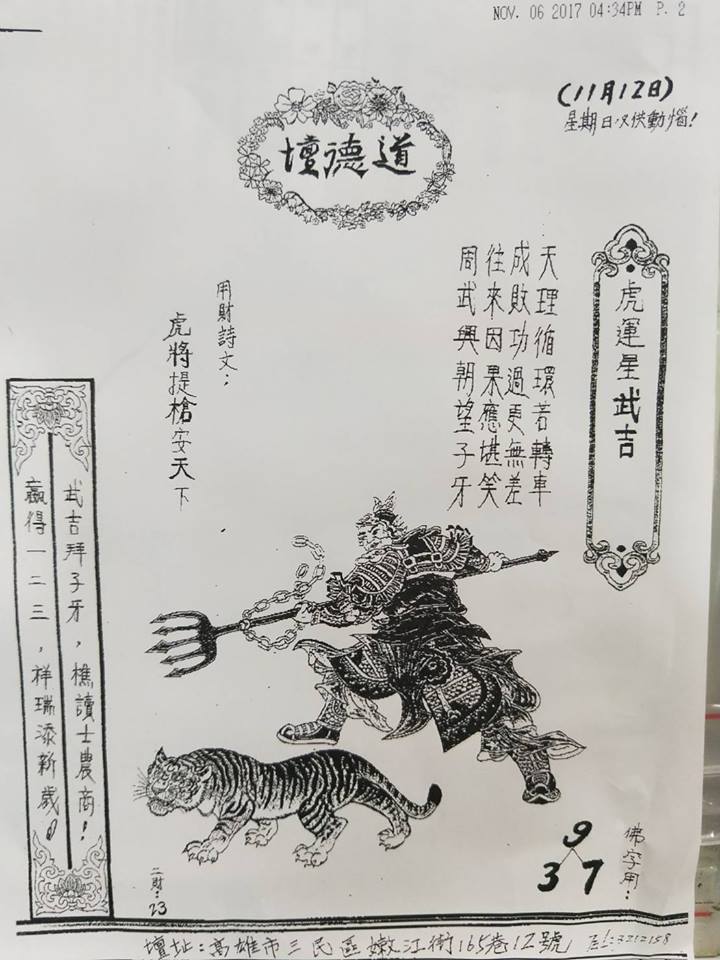 NOV. 06 2017 04:34PM P. 2
(11月12日)
星期日又供動惱!
道德壇
虎運星武吉
天理循環若轉車
成敗功過更無差
往來因果應堪笑
周武興朝望子牙
用財詩文：
虎將提槍安天下
武吉拜子牙，樵讀士農商！
贏得一二三，祥瑞添新歲。
佛字用：
9
3 7
二財：23
壇址：高雄市三民區嫩江街165巷12號 Tel:3212158